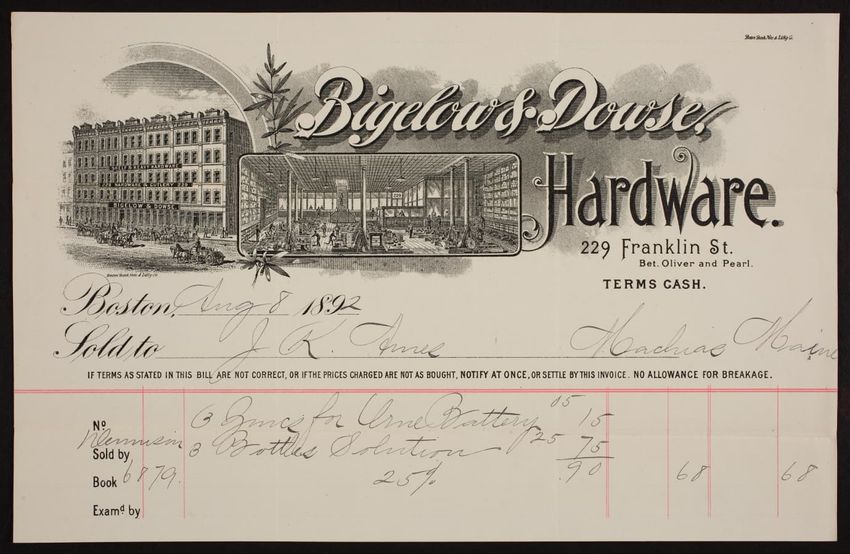 Bigelow & Dowse,
Hardware.
229 Franklin St.
Bet. Oliver and Pearl.
TERMS CASH.
BIGELOW & DOWSE
Boston, Aug 8 1892
Sold to J. K. Ames Machias Maine
IF TERMS AS STATED IN THIS BILL ARE NOT CORRECT, OR IF THE PRICES CHARGED ARE NOT AS BOUGHT, NOTIFY AT ONCE, OR SETTLE BY THIS INVOICE. NO ALLOWANCE FOR BREAKAGE.
No 3 Zincs for Battery 05 15
Dennison
Sold by 3 Bottles Solution 25 75
Book 6879. 25% .90 68 68
Examd by